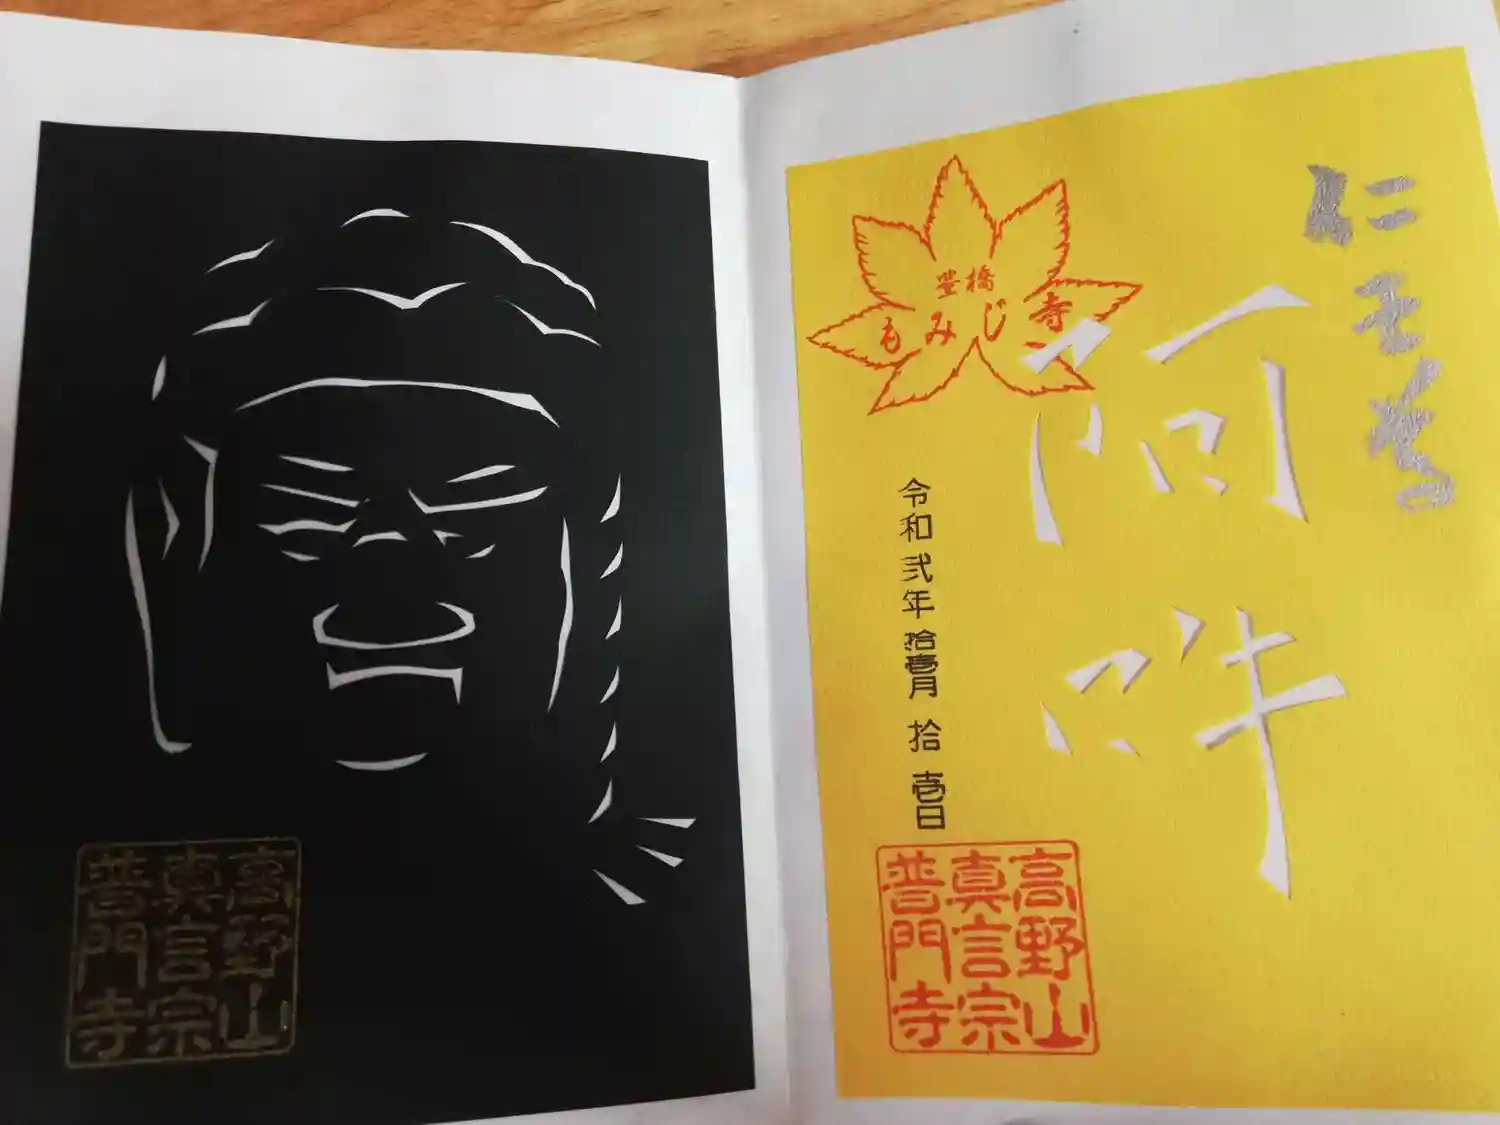 高野山
真言宗
普門寺
仁王尊
阿
吽
豊橋
もみじ寺
令和弐年拾壱月拾壱日
高野山
真言宗
普門寺